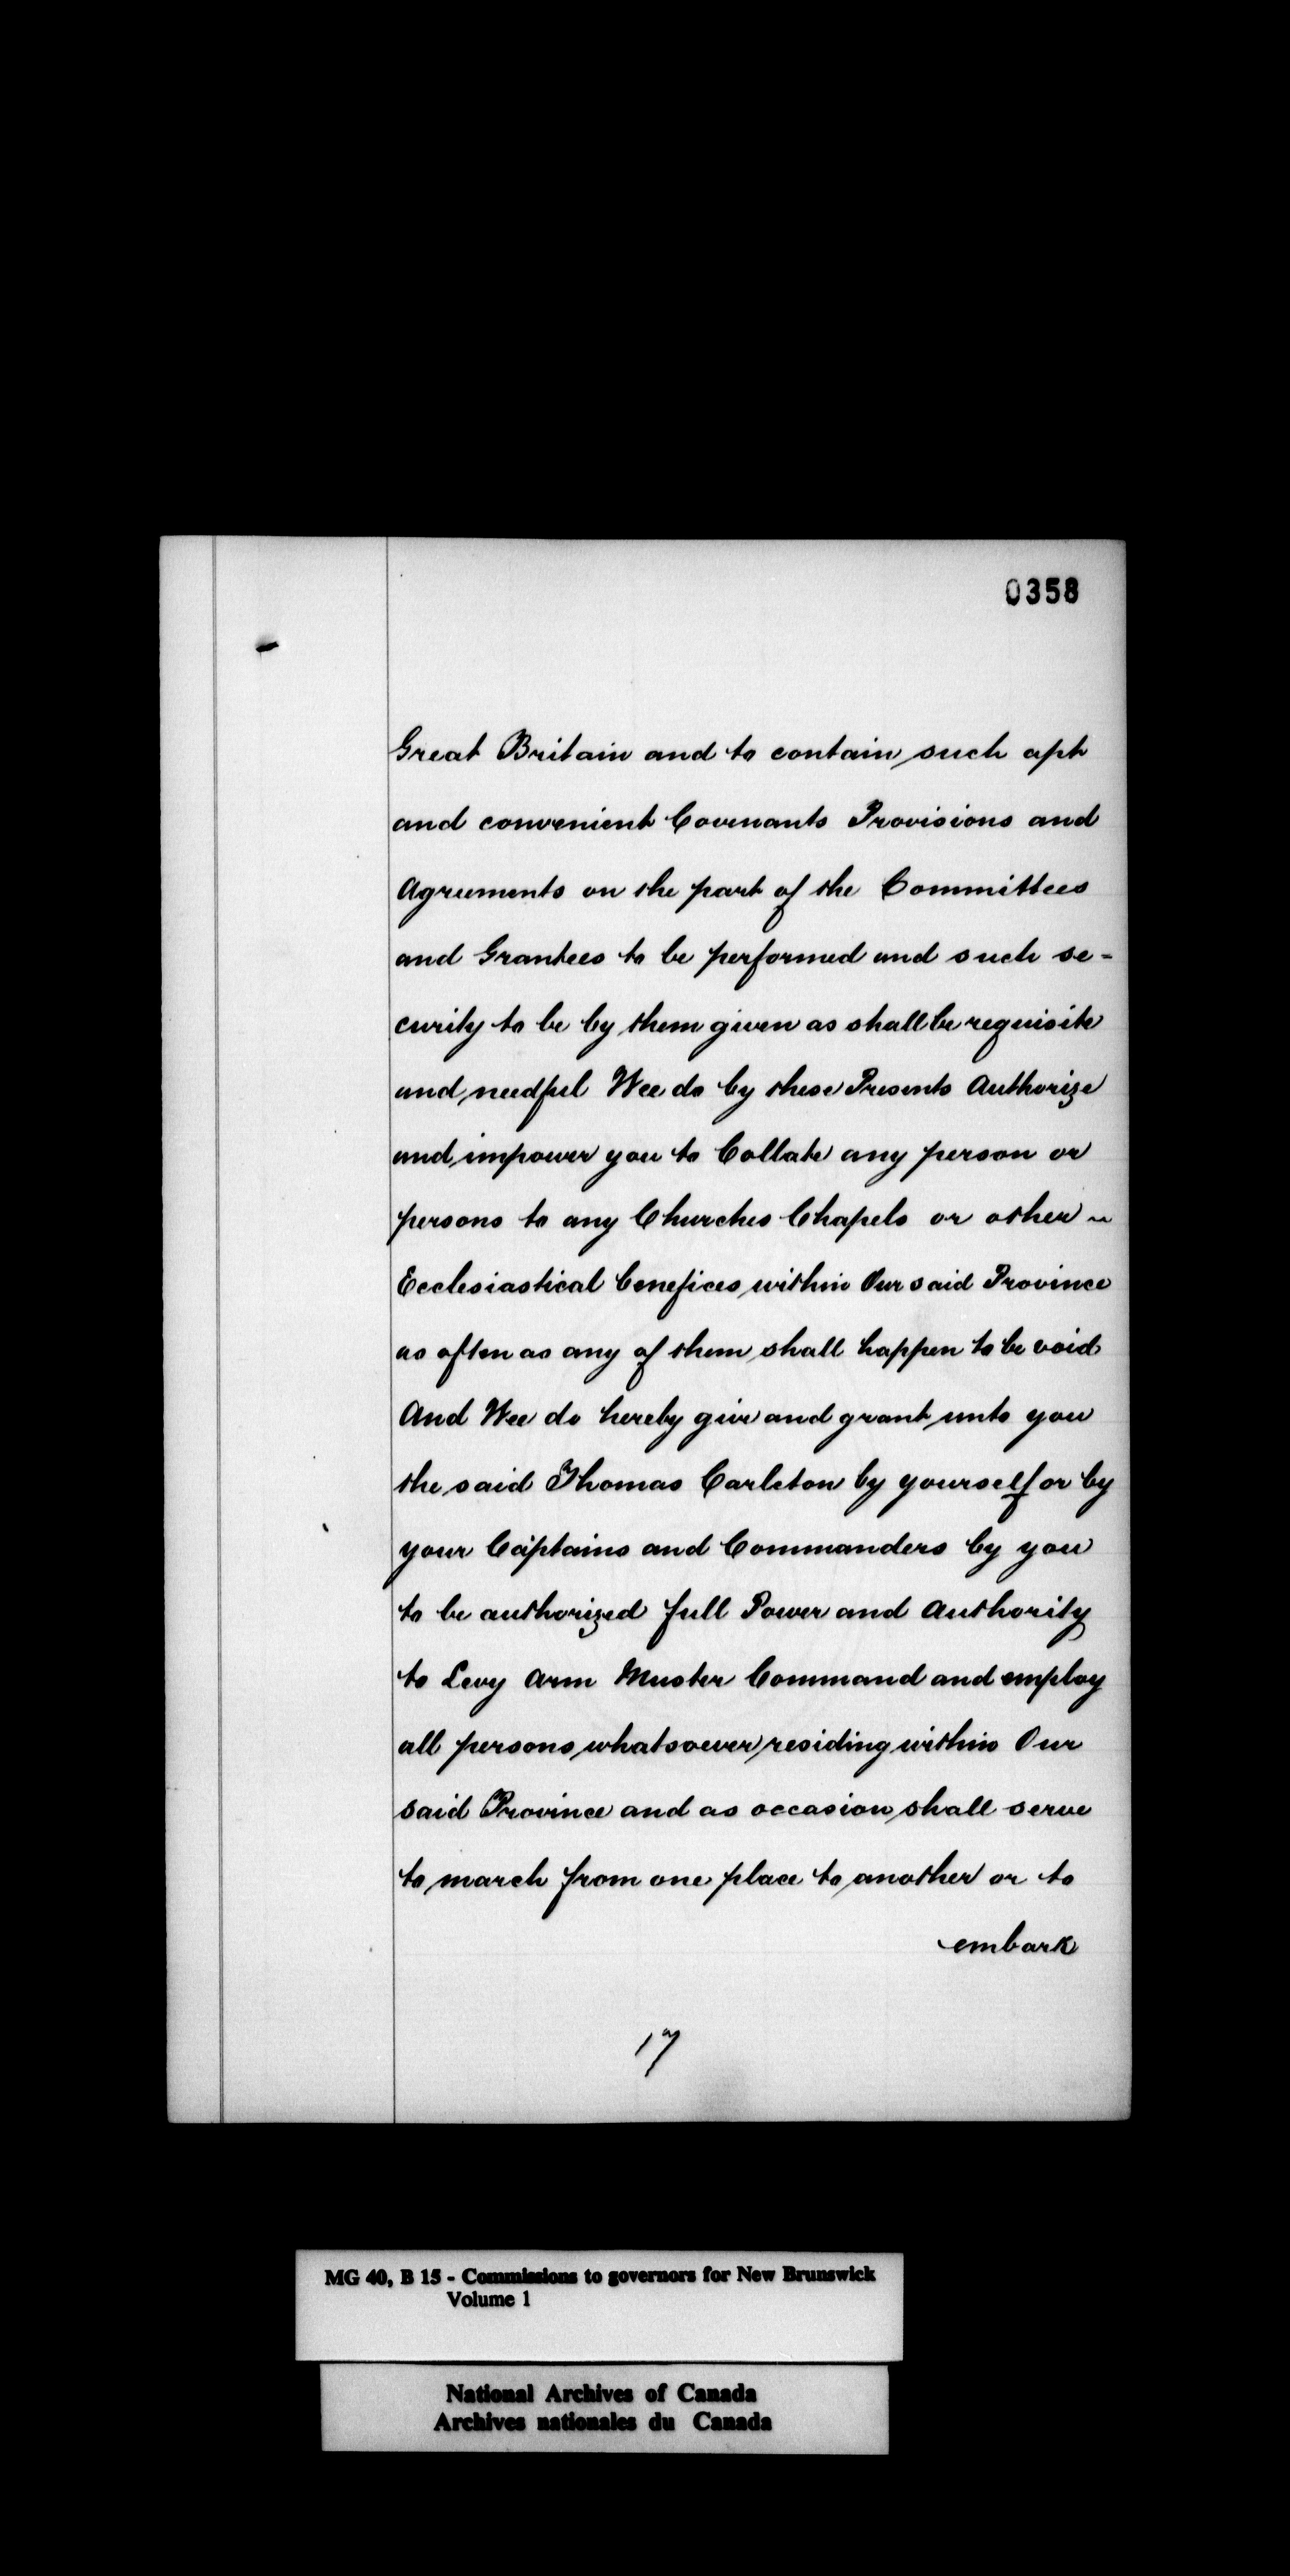 0358
Great Britain and to contain such apt
and convenient Covenants Provisions and
Agreements on the part of the Committees
and Grantees to be performed and such se-
curity to be by them given as shall be requisite
and needful Wee do by these Presents Authorize
and impower you to Collate any person or
persons to any Churches Chapels or other ~
Ecclesiastical benefices within Our said Province
as often as any of them shall happen to be void
And Wee do hereby give and grant unto you
the said Thomas Carleton by yourself or by
your Captains and Commanders by you
to be authorized full Power and Authority
to Levy Arm Muster Command and employ
all persons whatsoever residing within Our
said Province and as occasion shall serve
to march from one place to another or to
embark
17
MG 40, B 15 - Commissions to governors for New Brunswick
Volume 1
National Archives of Canada
Archives nationales du Canada